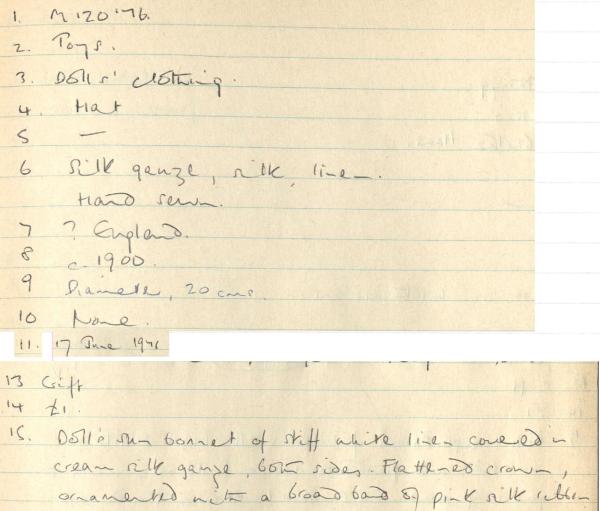 1. M.20.'76.
2. Toys.
3. Dolls' clothing.
4. Hat
5 —
6 Silk gauze, silk, linen.
Hand sewn.
7 ? England.
8 c. 1900.
9 Diameter, 20 cms.
10 None.
11. 17 June 1976
13 Gift
14 £1.
15. Doll's sun bonnet of stiff white linen covered in
cream silk gauze, both sides. Flattened crown,
ornamented with a broad band of pink silk ribbon